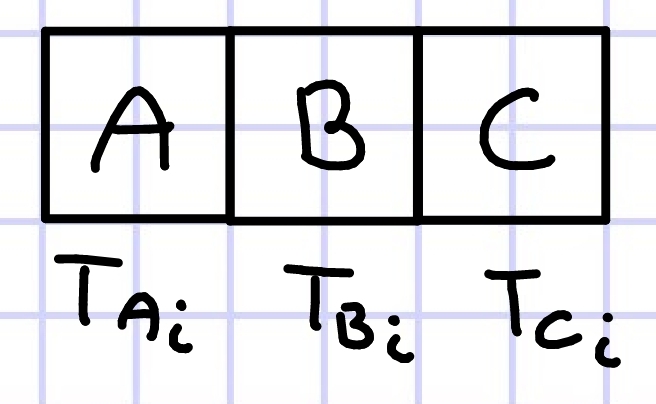 A B C
T_{A_i} T_{B_i} T_{C_i}